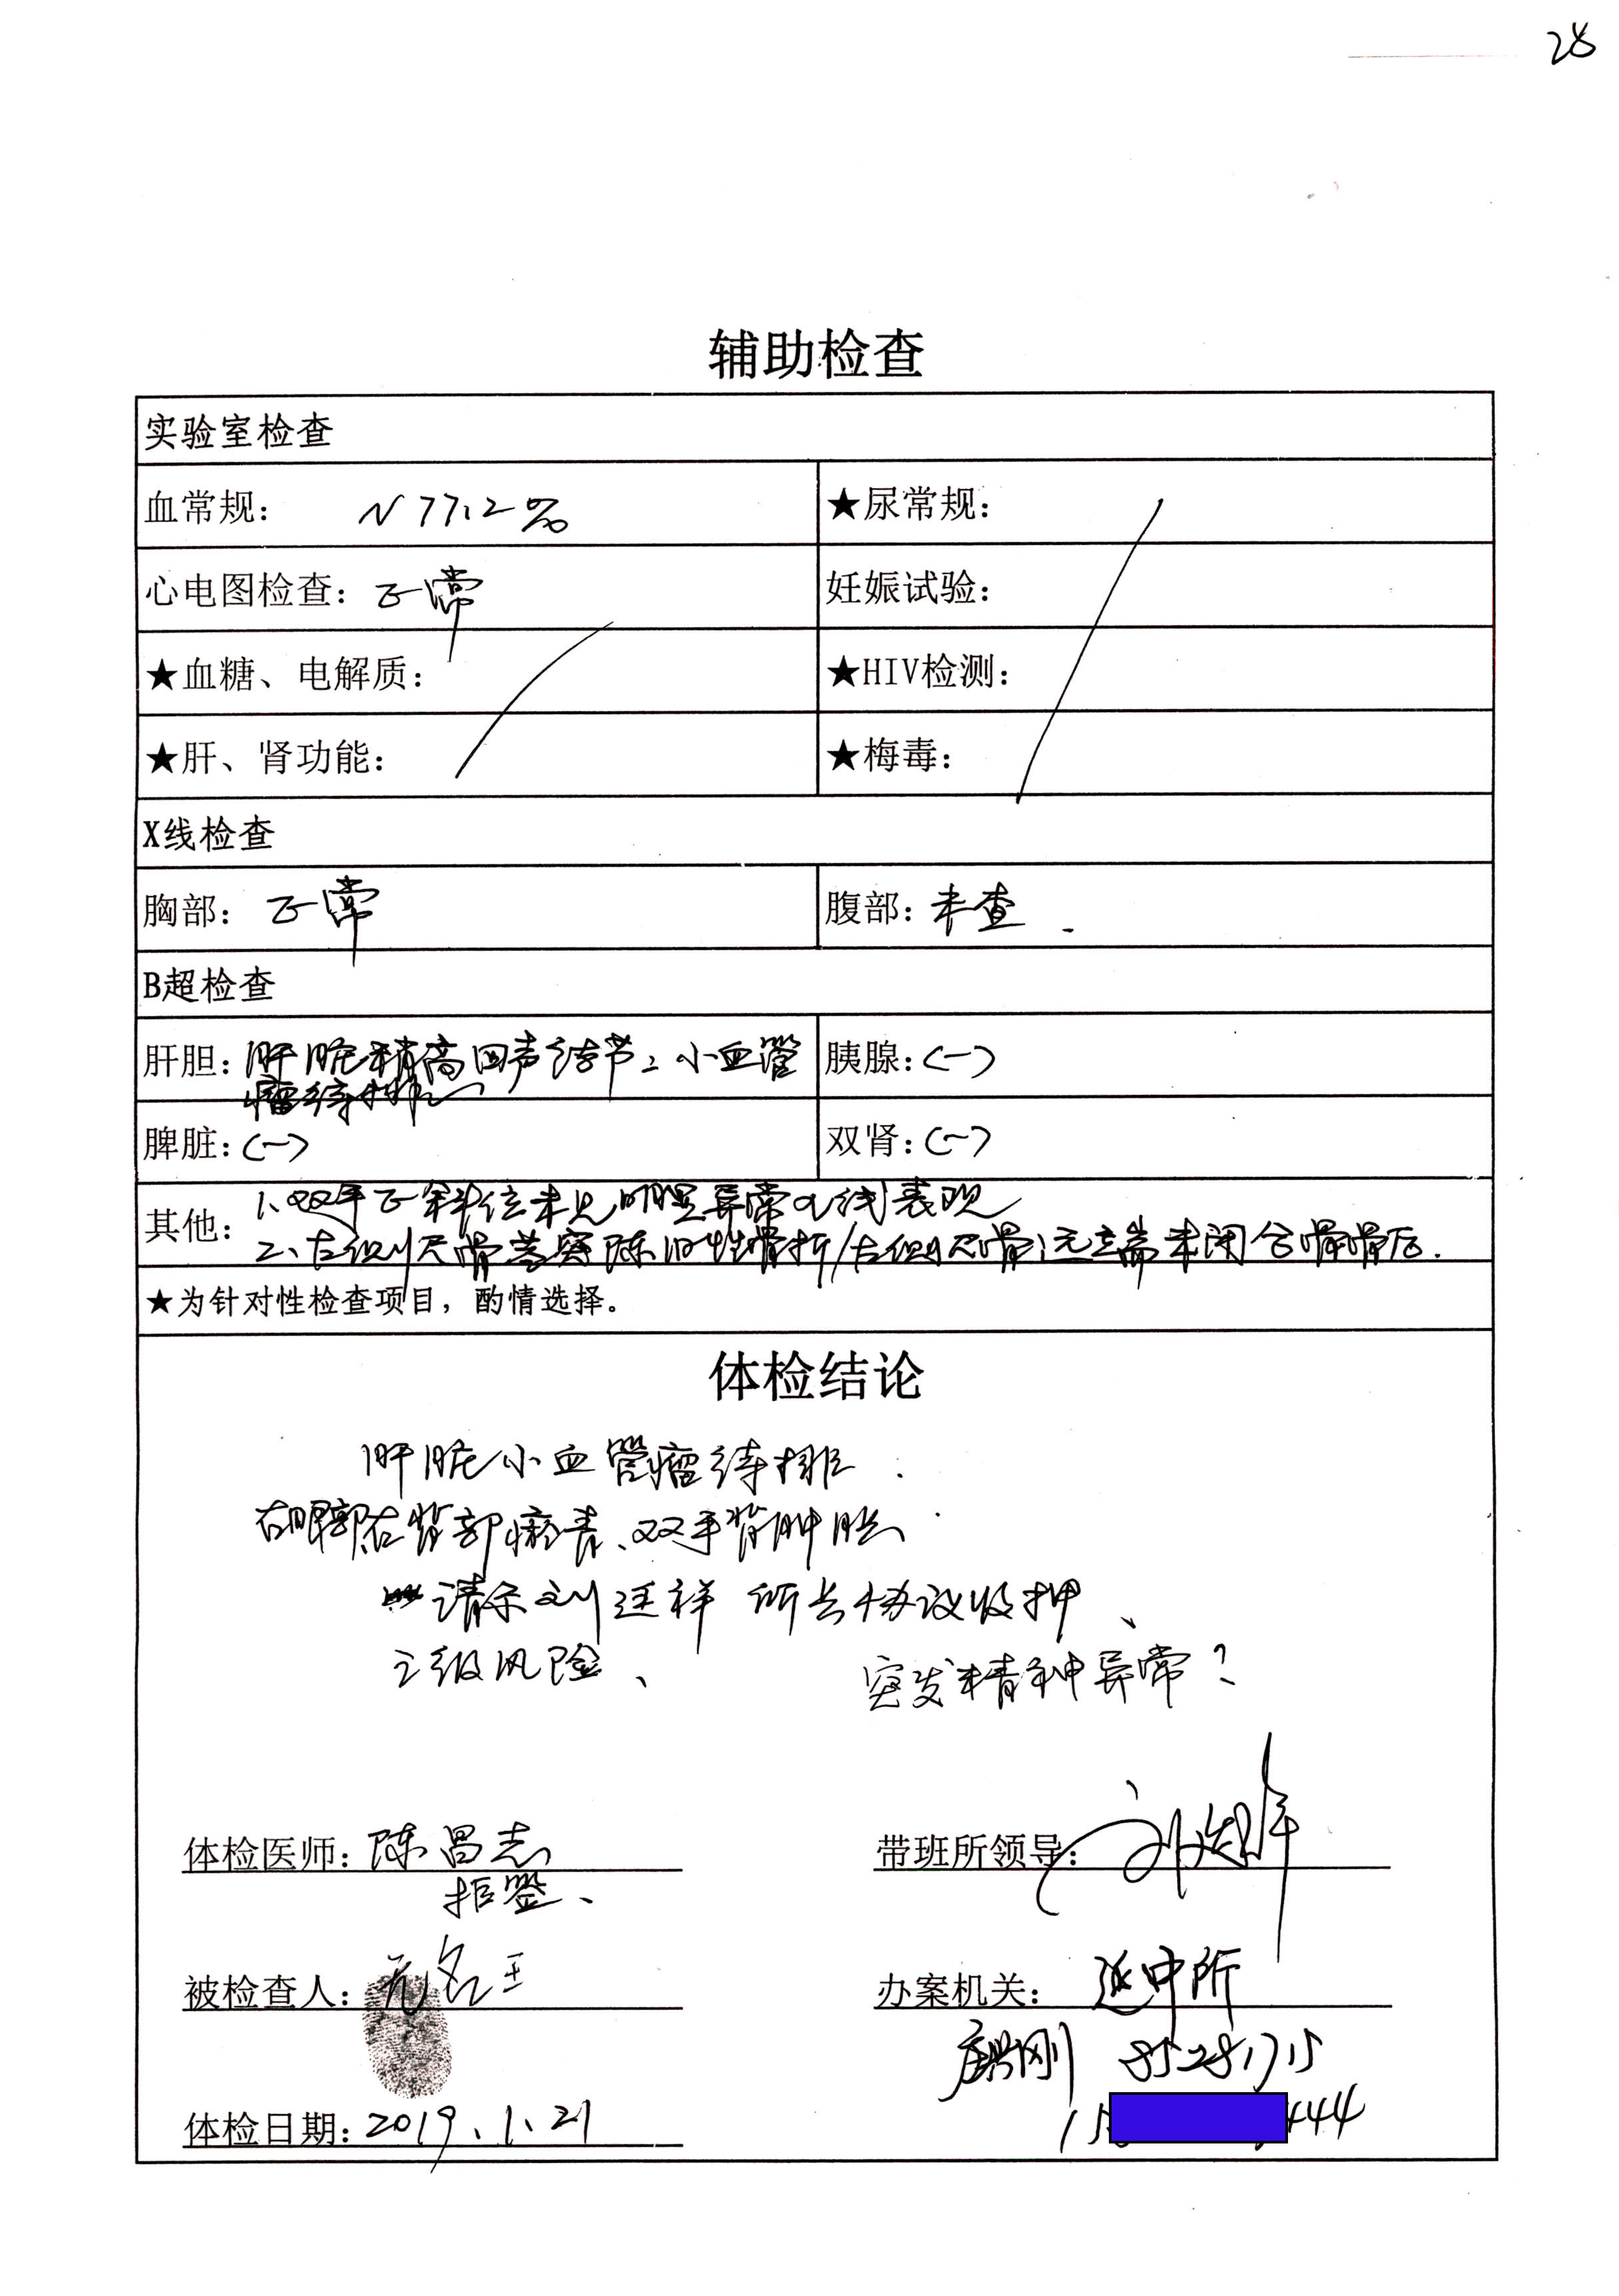 28
辅助检查
实验室检查
血常规： N 77.2%
★尿常规：
心电图检查：正常
妊娠试验：
★血糖、电解质：
★HIV检测：
★肝、肾功能：
★梅毒：
X线检查
胸部：正常
腹部：未查.
B超检查
肝胆：肝脏稍高回声结节：小血管
瘤待排
胰腺：(一)
脾脏：(一)
双肾：(一)
其他：1、双手正斜位未见明显异常X线表现
2、右侧尺骨茎突陈旧性骨折/右侧尺骨远端未闭合骨骺后.
★为针对性检查项目，酌情选择。
体检结论
肝脏小血管瘤待排.
右眼部右背部瘀青、双手背肿胀
请示刘廷祥所长协议收押、
三级风险、
突发精神异常？
体检医师：陈昌志
拒签、
带班所领导：
被检查人：无名王
办案机关：延中所
刚 85281715
体检日期：2019.1.21
15 444